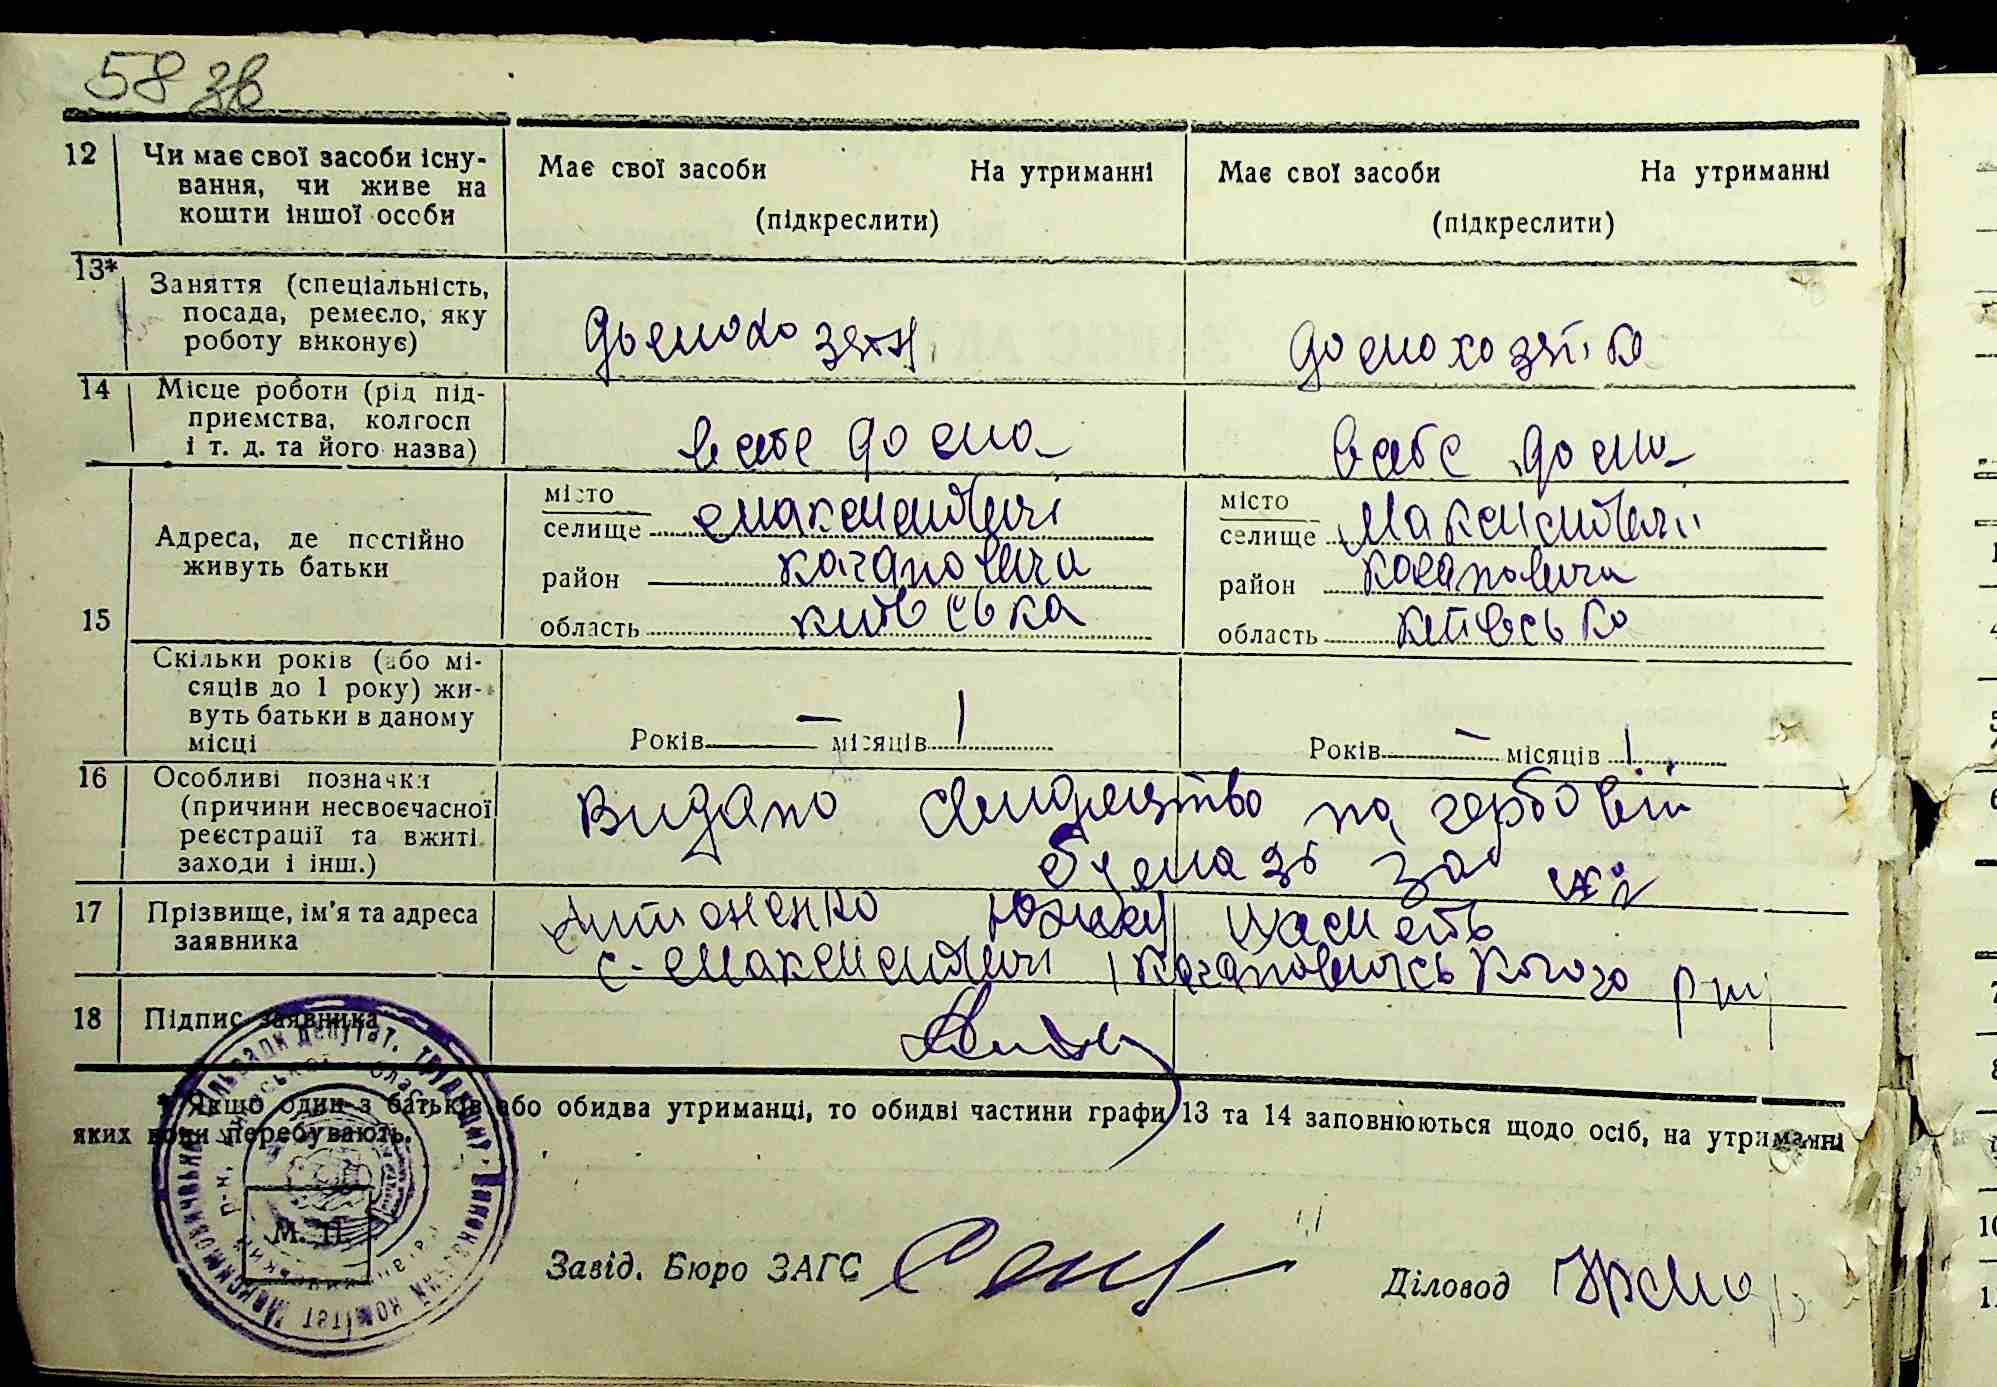 58 зв
12 Чи має свої засоби існу-
вання, чи живе на
кошти іншої особи
Має свої засоби На утриманні
(підкреслити)
Має свої засоби На утриманні
(підкреслити)
13* Заняття (спеціальність,
посада, ремесло, яку
роботу виконує)
домохозяй
домохозяйка
14 Місце роботи (рід під-
приємства, колгосп
і т. д. та його назва)
в себе дома
в себе дома
15
Адреса, де постійно
живуть батьки
місто
селище Максимовичі
район Каганович
область Київська
місто
селище Максимовичі
район Каганович
область Київсько
Скільки років (або мі-
сяців до 1 року) жи-
вуть батьки в даному
місці
Років – місяців 1
Років – місяців 1
16 Особливі позначки
(причини несвоєчасної
реєстрації та вжиті
заходи і інш.)
Видано свидецтво на гербовій
бумазі за №
17 Прізвище, ім'я та адреса
заявника
Антоненко
с. Максимовичі Кагановичського р-ну
18 Підпис заявника
* Якщо один з батьків або обидва утриманці, то обидві частини графи 13 та 14 заповнюються щодо осіб, на утриманні
яких вони перебувають.
М. П.
Завід. Бюро ЗАГС
Діловод